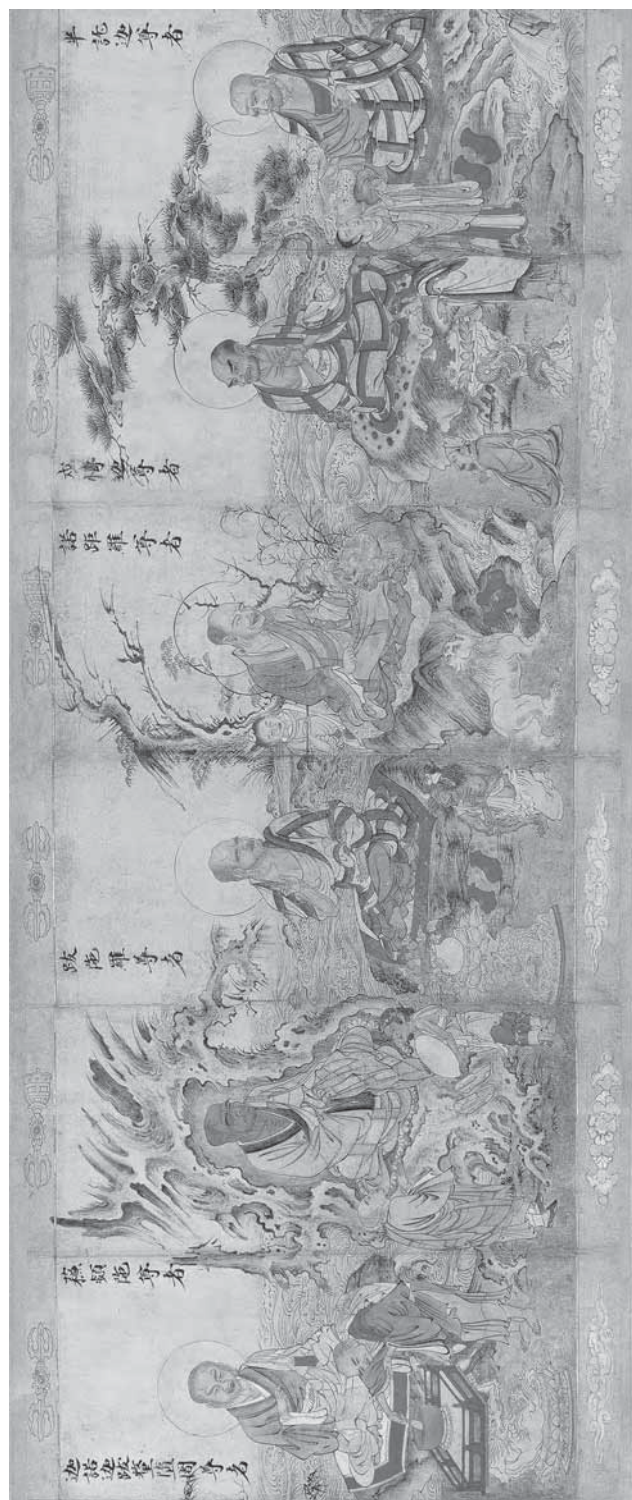 半託迦尊者
戍愽迦尊者
諾距羅尊者
跋陁羅尊者
蘓頻陁尊者
迦諾迦跋釐墮闍尊者